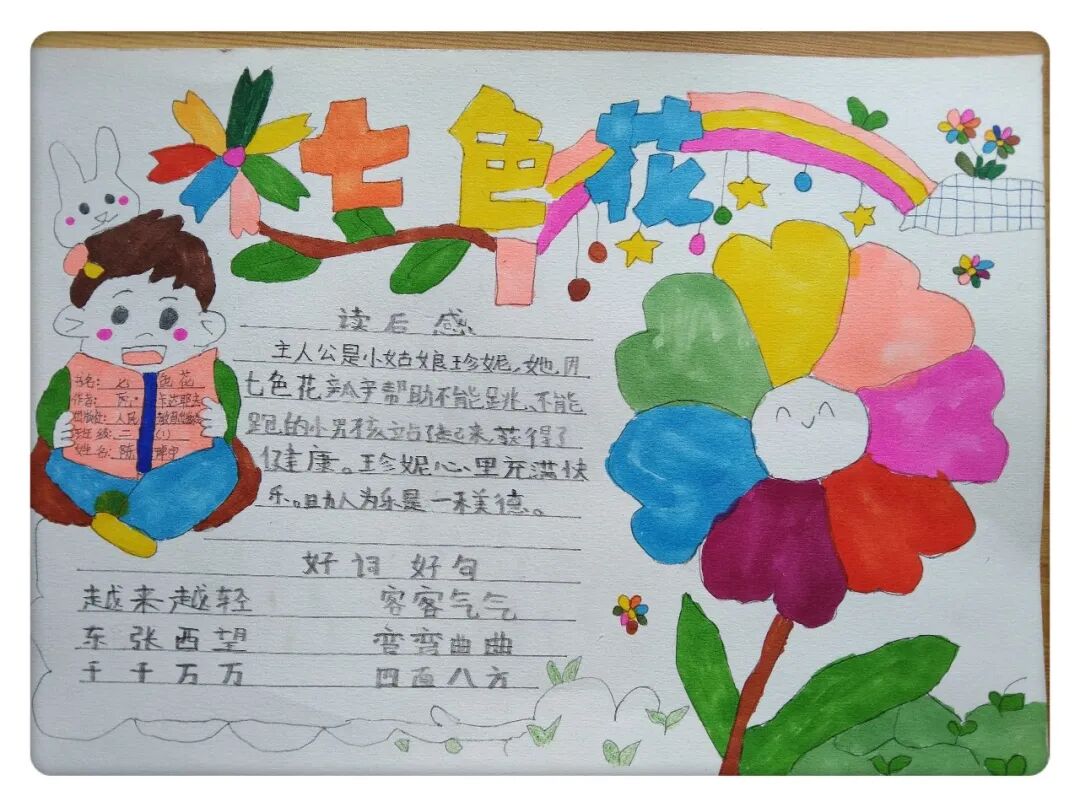 七色花
书名：七色花
作者：卡达耶夫
出版社：人民教育出版社
班级：二（1）
姓名：陈
读后感
主人公是小姑娘珍妮。她用
七色花瓣子帮助不能跳、不能
跑的小男孩站起来，获得了
健康。珍妮心里充满快
乐。助人为乐是一种美德。
好词好句
越来越轻 客客气气
东张西望 弯弯曲曲
千千万万 四面八方